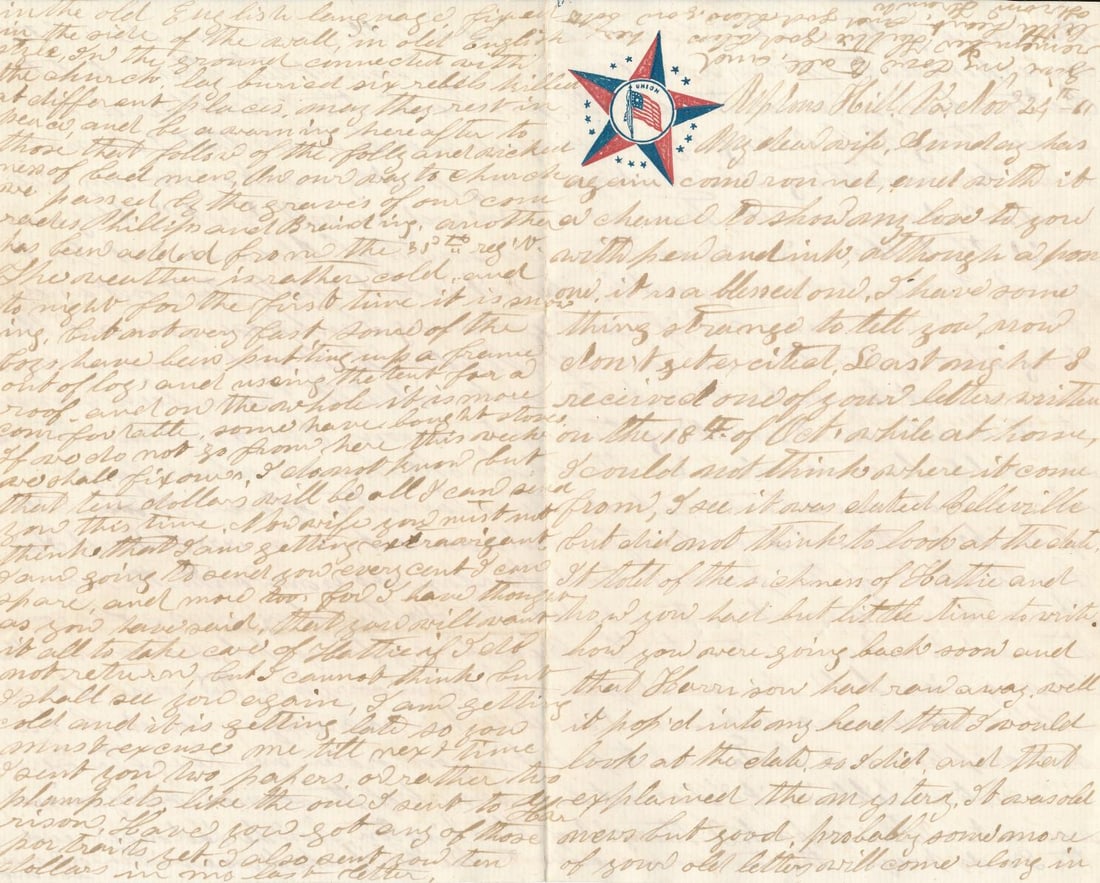 UNION
Uptons Hill, Va, Nov 24th 61
My dear wife, Sunday has
again come round, and with it
a chance to show my love to you
with pen and ink, although a poor
one, it is a blessed one, I have some
thing strange to tell you, now
don't get excited, Last night I
received one of your letters written
on the 18th of Oct, while at home,
I could not think where it come
from, I see it was dated Belleville
but did not think to look at the date,
It told of the sickness of Hattie and
how you had but little time to write
how you were going back soon and
that Harrison had ran away, well
it pop'd into my head that I would
look at the date, so I did, and that
explained the mystery, It was old
news but good, probably some more
of your old letters will come along in
in the old English language, fixed
in the side of the wall, in old English
style, In the ground connected with
the church, is buried six rebels killed
at different places, may they rest in
peace and be a warning hereafter to
those that follow of the folly and wicked
ness of bad men, On our way to church
we passed by the graves of our com
rades Phillips and Braiding, another
has been added from the 35th reg't.
The weather is rather cold, and
to night for the first time it is snow
ing, but not very fast, some of the
boys have been putting up a frame
out of logs and using the tent for a
roof, and on the whole it is more
comfortable, some have bought stoves
If we do not go from here this week
we shall fix ours, I do not know but
that ten dollars will be all I can send
you this time, Now wife you must not
think that I am getting extravigent
I am going to send you every cent I can
spare, and more too for I have thought
as you have said, that you will want
it all to take care of Hattie if I do
not return, but I cannot think but
I shall see you again, I am getting
cold and it is getting late so you
must excuse me till next time
I sent you two papers or rather two
phamplets like the one I sent to Har
rison, Have you got any of those
portraits yet, I also sent you ten
dollars in my last letter,